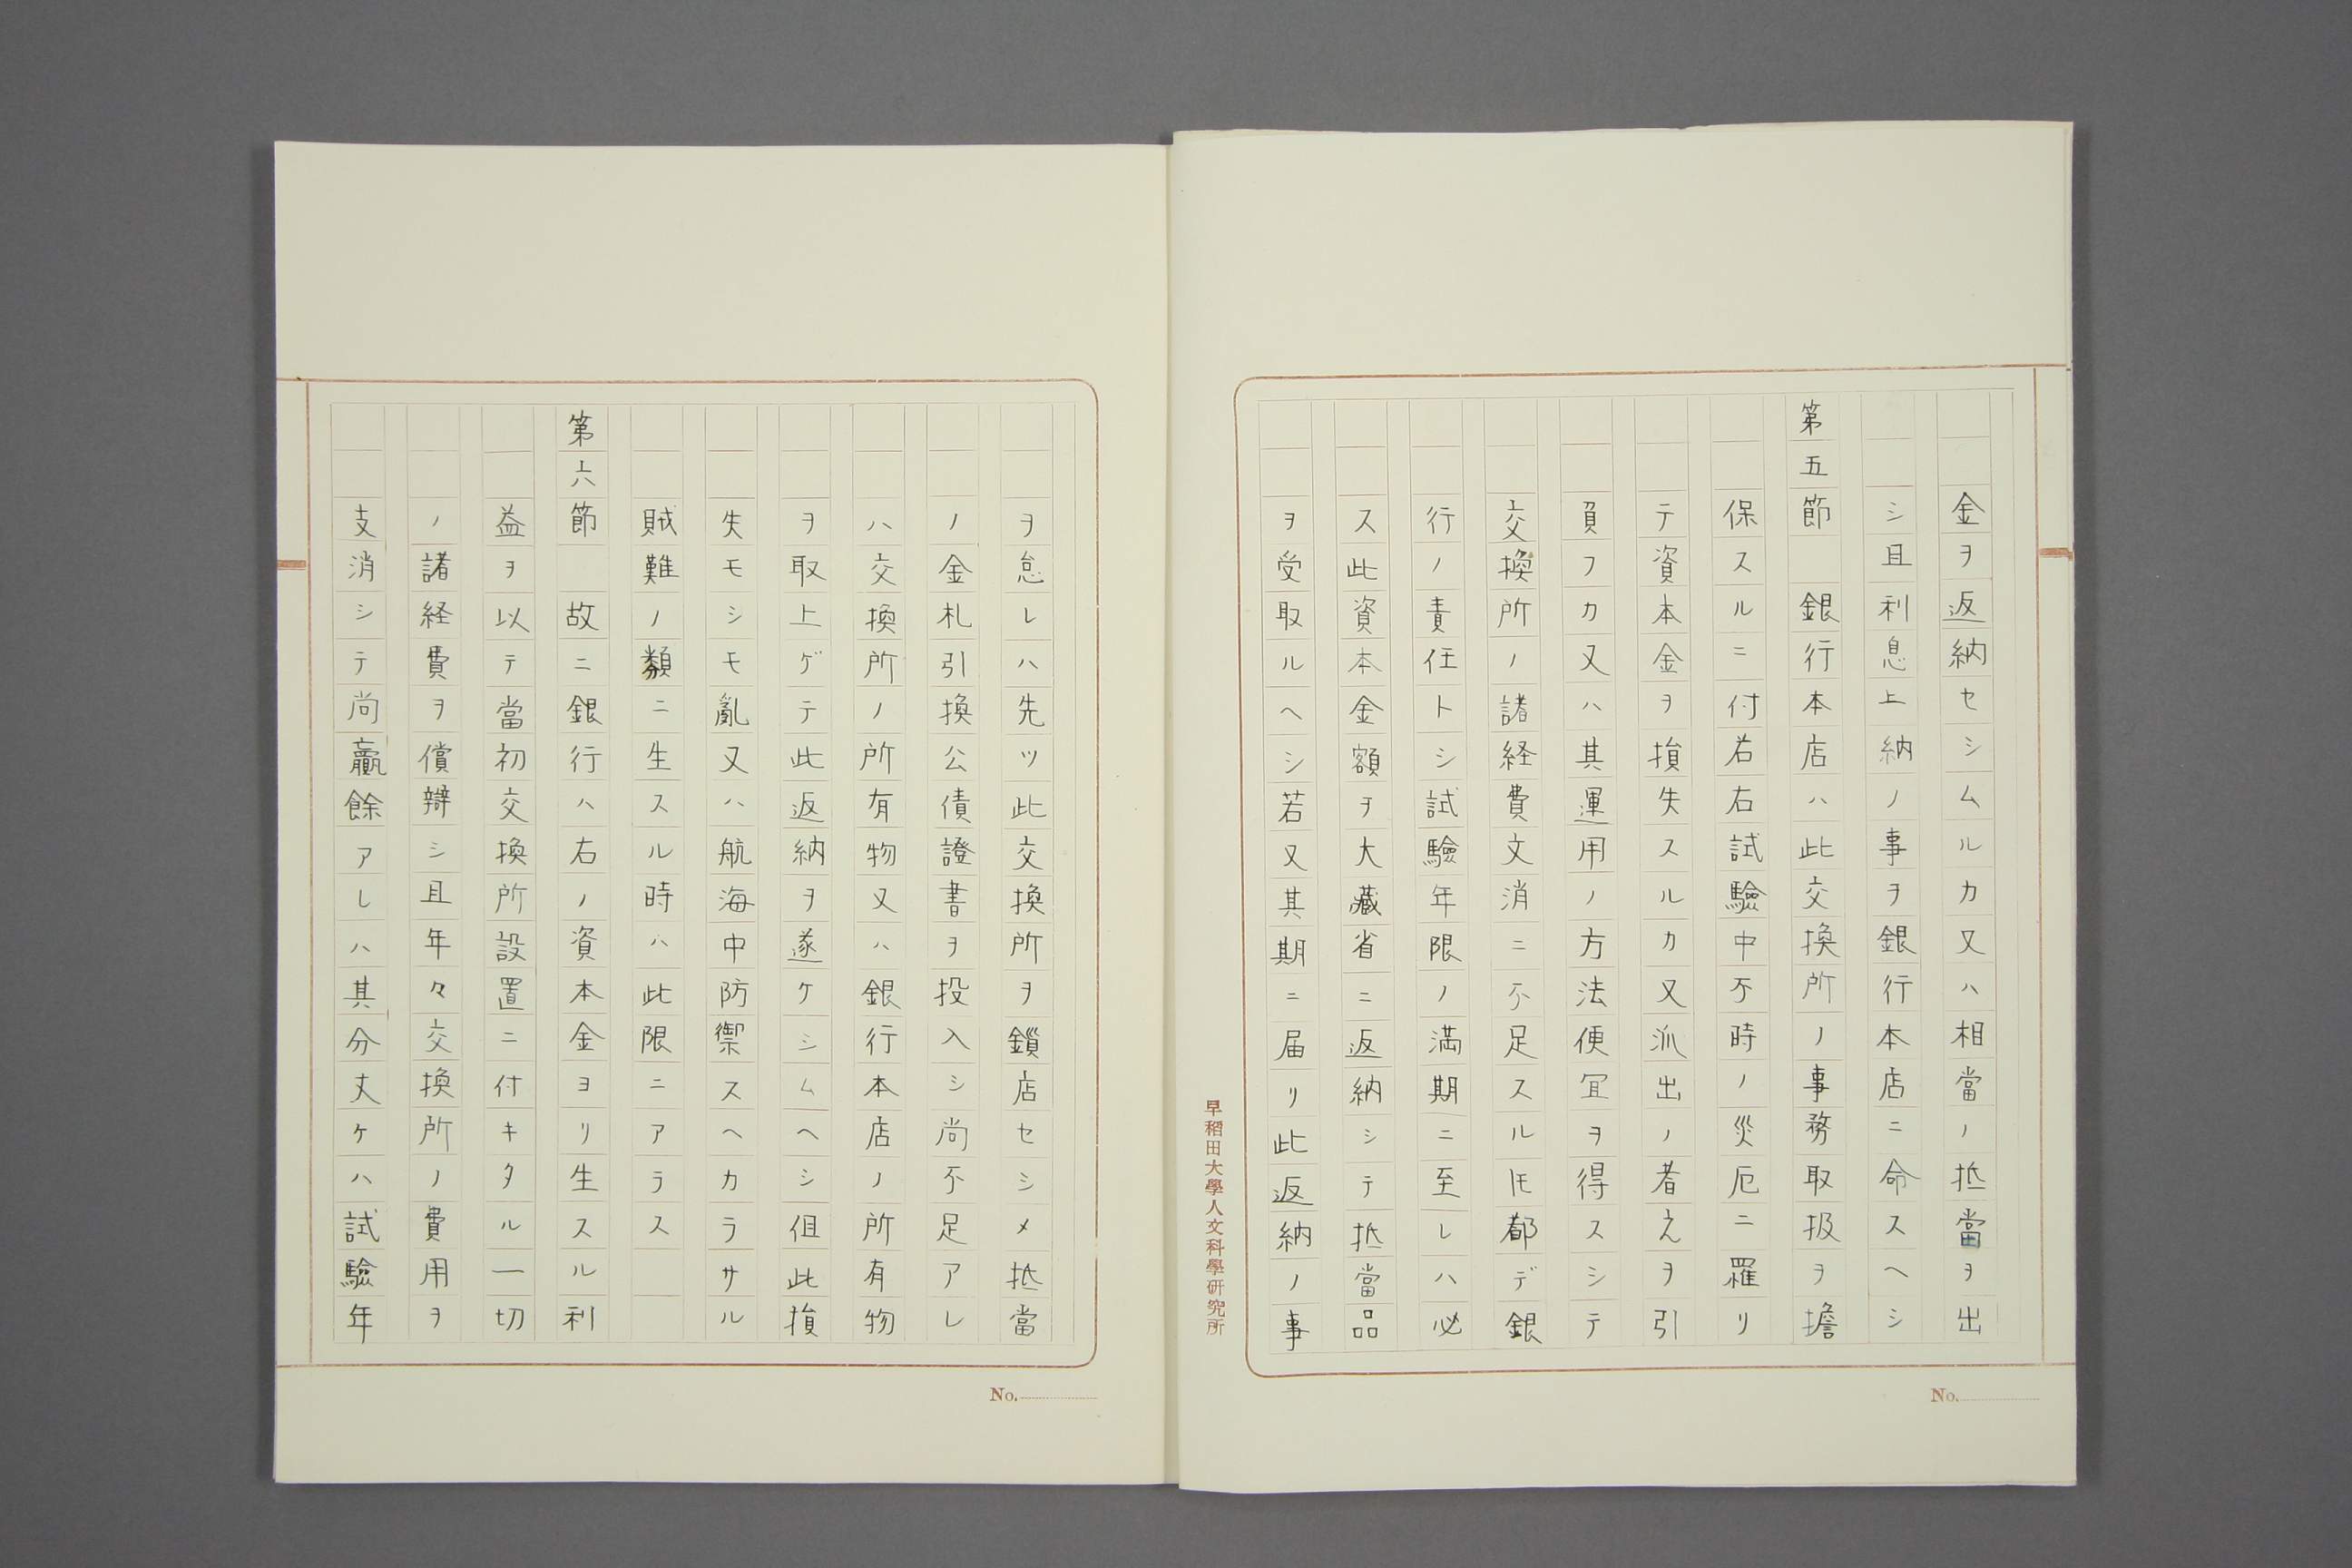 金ヲ返納セシムルカ又ハ相當ノ抵當ヲ出
シ且利息上納ノ事ヲ銀行本店ニ命スヘシ
第五節　銀行本店ハ此交換所ノ事務取扱ヲ擔
保スルニ付若右試驗中不時ノ災厄ニ羅リ
テ資本金ヲ損失スルカ又派出ノ者之ヲ引
負フカ又ハ其運用ノ方法便冝ヲ得スシテ
交換所ノ諸経費文消ニ不足スルㇳモ都デ銀
行ノ責任トシ試驗年限ノ満期ニ至レハ必
ス此資本金額ヲ大藏省ニ返納シテ抵當品
ヲ受取ルヘシ若又其期ニ届リ此返納ノ事
早稻田大學人文科學研究所
No.
ヲ怠レハ先ツ此交換所ヲ鎖店セシメ抵當
ノ金札引換公債證書ヲ投入シ尚不足アレ
ハ交換所ノ所有物又ハ銀行本店ノ所有物
ヲ取上ゲテ此返納ヲ遂ケシムヘシ但此損
失モシモ亂又ハ航海中防禦スヘカラサル
賊難ノ類ニ生スル時ハ此限ニアラス
第六節　故ニ銀行ハ右ノ資本金ヨリ生スル利
益ヲ以テ當初交換所設置ニ付キタル一切
ノ諸経費ヲ償辯シ且年々交換所ノ費用ヲ
支消シテ尚贏餘アレハ其分丈ケハ試驗年
No.